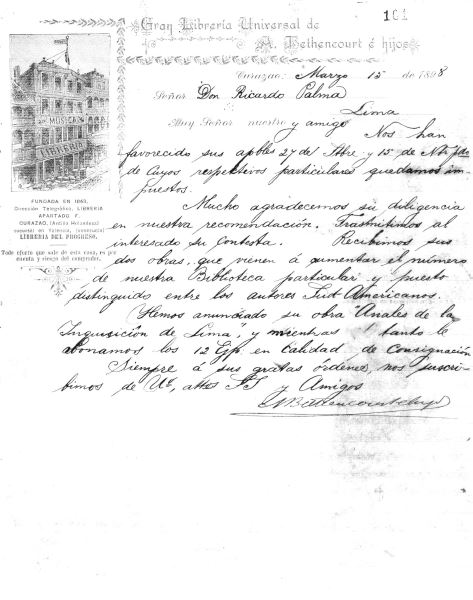 101
Gran Librería Universal de
A. Bethencourt é hijos
Curazao: Marzo 15 de 1898
Señor Don Ricardo Palma
Lima
Muy Señor nuestro y amigo
Nos han
favorecido sus apbles 27 del Sbre y 15 de
de cuyos respectivos particulares quedamos im-
puestos.
Mucho agradecemos su diligencia
en nuestra recomendación. Trasmitimos al
interesado su contesta. Recibimos sus
dos obras, que vienen á aumentar el número
de nuestra Biblioteca particular y puesto
distinguido entre los autores Sud Americanos.
Hemos anunciado su obra "Anales de la
Inquisición de Lima", y mientras tanto le
abonamos los 12 Ejs. en calidad de consignación
Siempre á sus gratas órdenes, nos suscri-
bimos de Ud. attos SS y Amigos
A Bethencourt e hijos
MUSICA
LIBRERIA
FUNDADA EN 1863.
Dirección Telegráfica, LIBRERIA
APARTADO F.
CURAZAO, (Antilla Holandesa)
sucursal en Valencia, (venezuela)
LIBRERIA DEL PROGRESO.
Todo efecto que sale de esta casa, es por
cuenta y riesgo del comprador.